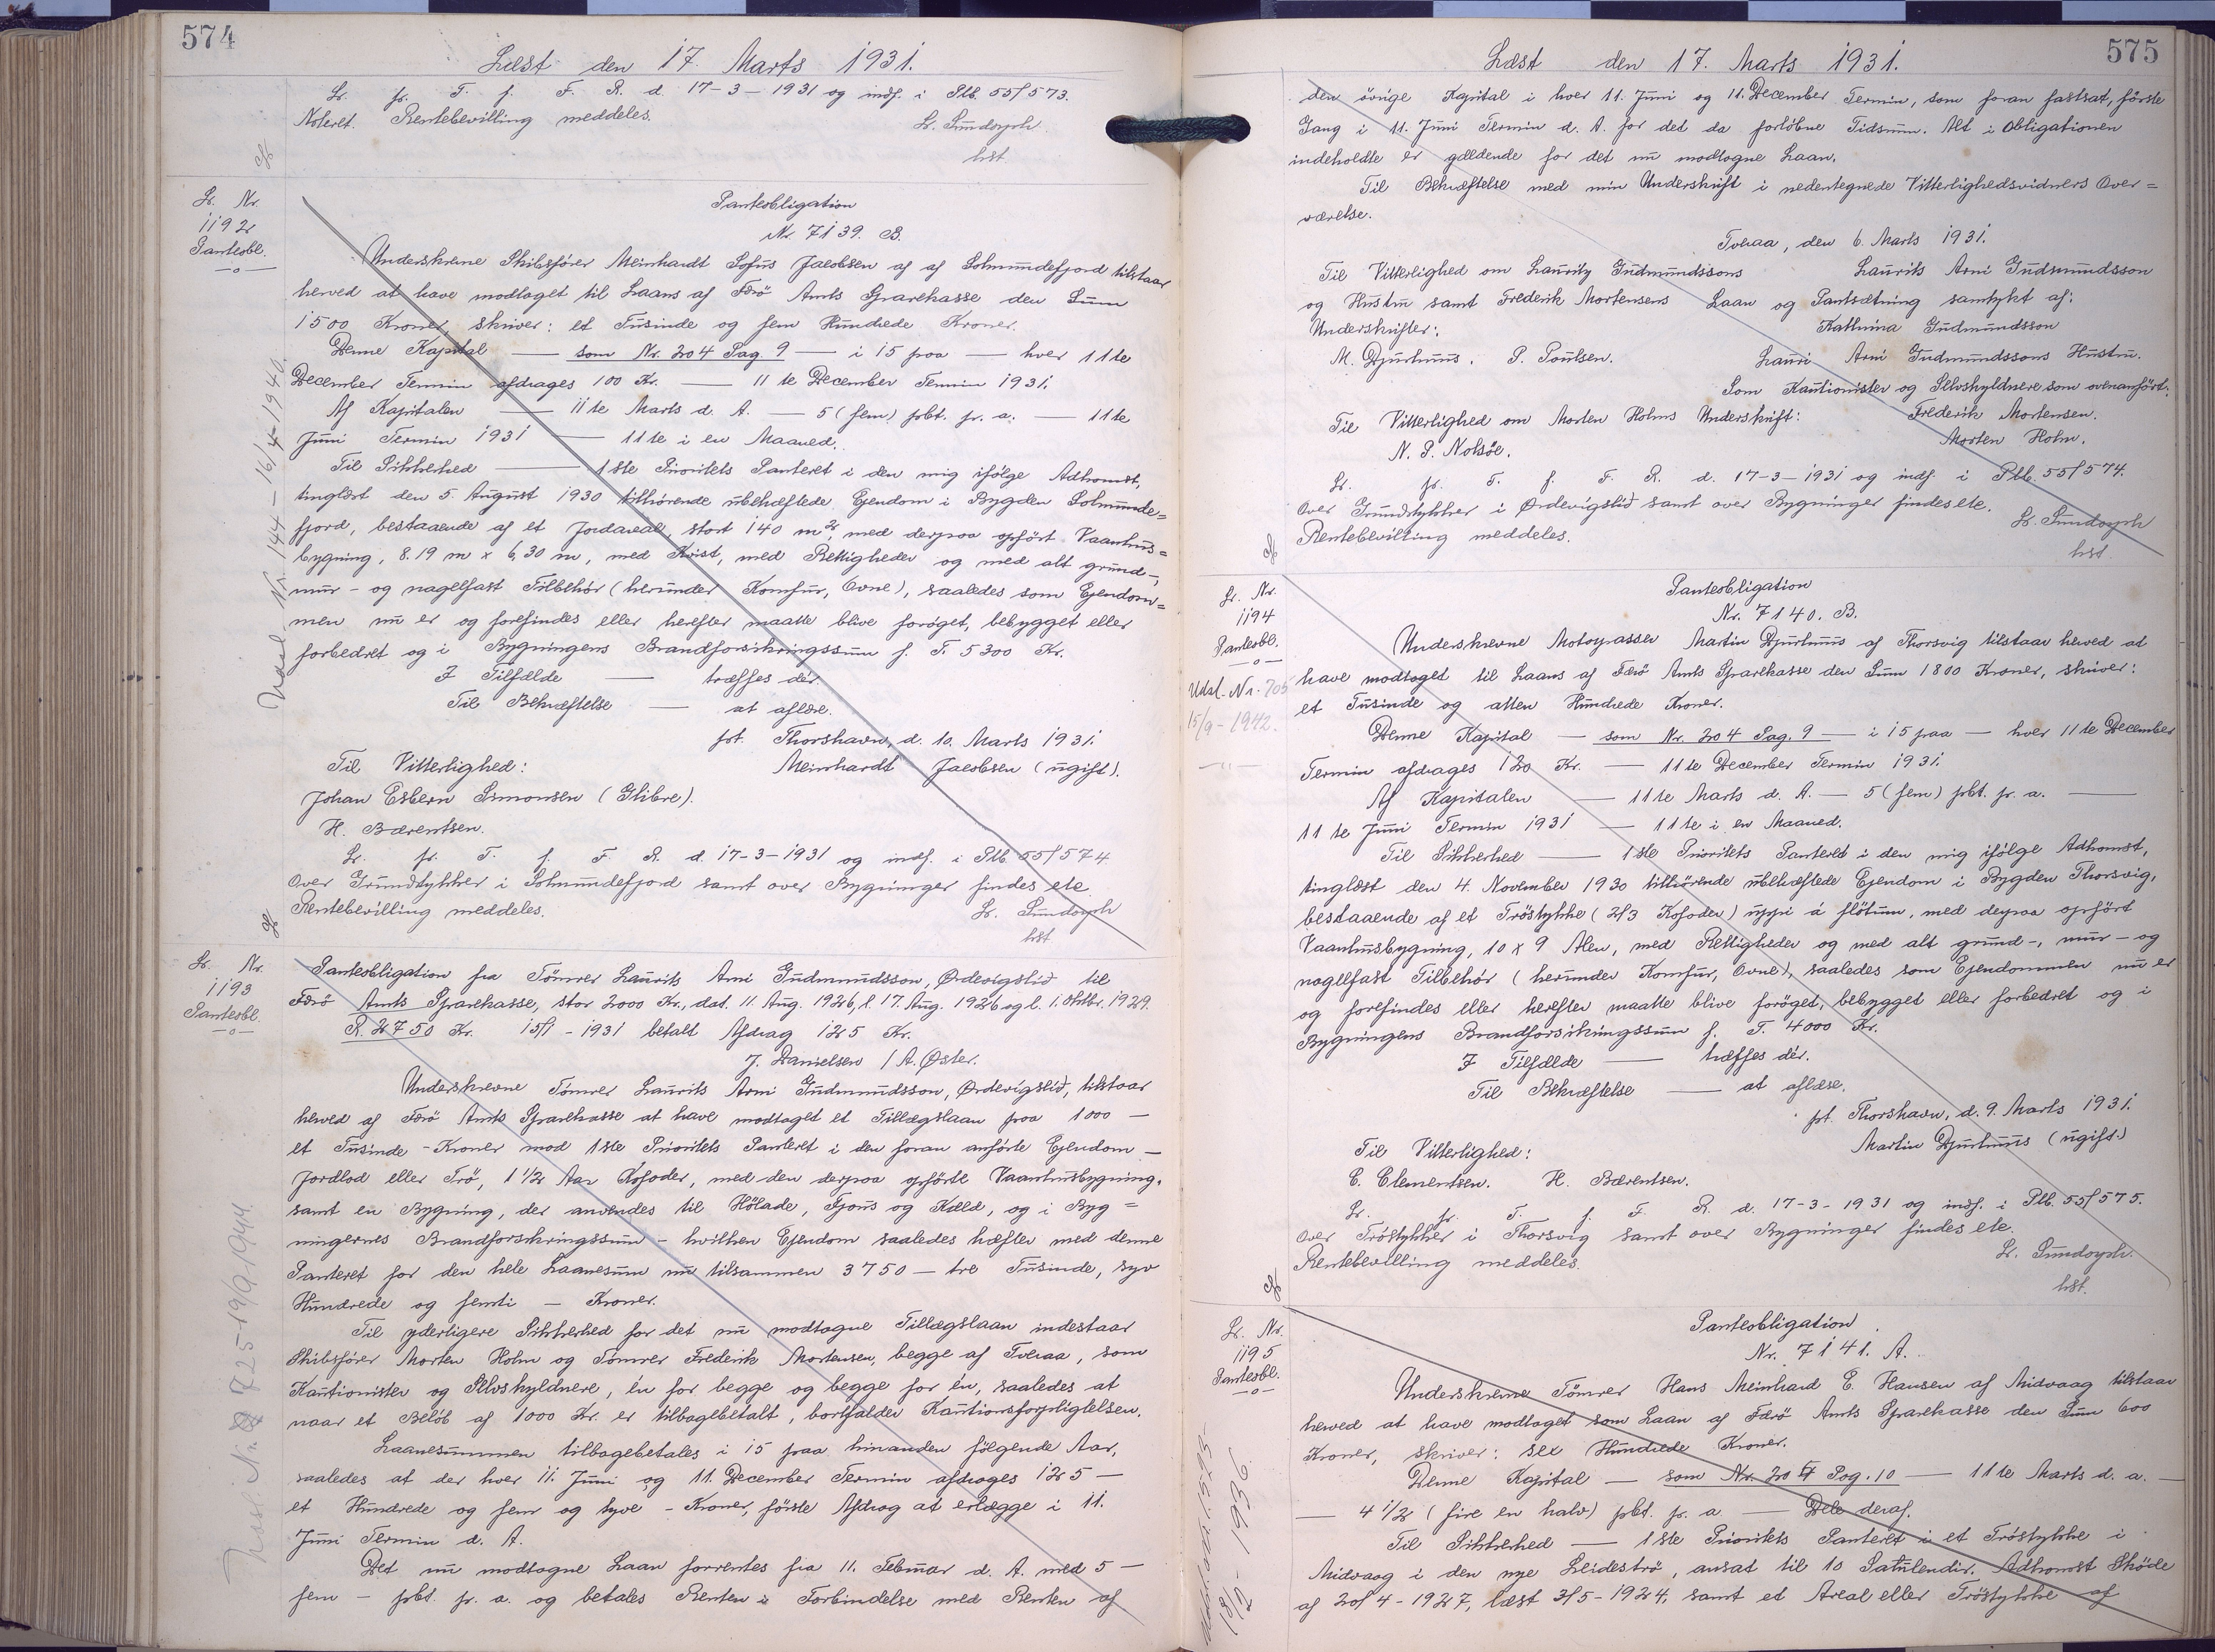 574
Læst den 17. Marts 1931.
Lr. pr. T. f. F. R. d. 17-3-1931 og indf. i Plb. 55/573.
Noteret. Rentebevilling meddeles.
Lr. Sundorph
hst
Lr. Nr.
1192
Pantesbl.
Pantesobligation
Nr. 7139. B.
Underskrevne Skibsfører Meinhardt Sofus Jacobsen af af Solmundefjord tilstaar
herved at have modtaget til Laans af Færö Amts Sparekasse den Sum
1500 Kroner, skriver: et Tusinde og fem Hundrede Kroner.
Denne Kapital — som Nr. 204 Pag. 9 — i 15 paa — hver 11te
December Termin afdrages 100 Kr. — 11te December Termin 1931.
Af Kapitalen — 11te Marts d. A. — 5 (fem) pbt. pr. a. — 11te
Juni Termin 1931 — 11te i en Maaned.
Til Sikkerhed — 1ste Prioritets Panteret i den mig ifølge Adkomst,
tinglæst den 5. August 1930 tilhørende ubehæftede Ejendom i Bygden Solmunde=
fjord, bestaaende af et Jordareal stort 140 m², med derpaa opført Vaanhus=
bygning, 8.19 m x 6,30 m, med Kvist, med Rettigheder og med alt grund-,
mur- og nagelfast Tilbehör (herunder Komfur, Ovne), saaledes som Ejendom=
men nu er og forefindes eller herefter maatte blive forøget, bebygget eller
forbedret og i Bygningens Brandforsikringssum f. T. 5300 Kr.
I Tilfælde — træffes dér.
Til Bekræftelse — at aflæse.
pt. Thorshavn, d. 10. Marts 1931.
Til Vitterlighed: Meinhardt Jacobsen (ugift).
Johan Esbern Simonsen (Glibre).
H. Bærentsen.
Lr. pr. T. f. F. R. d. 17-3-1931 og indf. i Plb. 55/574
Over Grundstykker i Solmundefjord samt over Bygninger findes ete.
Rentebevilling meddeles.
Lr. Sundorph
hst
Nr. 144 - 16/4-1940.
Lr. Nr.
1193
Pantesbl.
Pantesobligation fra Tömrer Laurits Arni Gudmundsson, Ørdevigslid til
Færö Amts Sparekasse, stor 3000 Kr., dat. 11. Aug. 1926, l. 17. Aug. 1926 og l. 1. Oktbr. 1929.
R. 2750 Kr. 15/1-1931 betalt Afdrag 125 Kr.
J. Danielsen / A. Øster.
Underskrevne Tömrer Laurits Arni Gudmundsson, Ørdevigslid, tilstaar
herved af Færö Amts Sparekasse at have modtaget et Tillægslaan paa 1000 —
et Tusinde - Kroner mod 1ste Prioritets Panteret i den foran anførte Ejendom —
Jordlod eller Trö, 1 1/2 Aar Kofoder, med den derpaa opførte Vaanhusbygning,
samt en Bygning, der anvendes til Hölade, Fjøus og Kæld, og i Byg=
ningernes Brandforsikringssum - hvilken Ejendom saaledes hæfter med denne
Panteret for den hele Laanesum nu tilsammen 3750 — tre Tusinde, syv
Hundrede og femti — Kroner.
Til yderligere Sikkerhed for det nu modtagne Tillægslaan indestaar
Skibsfører Morten Holm og Tömrer Frederik Mortensen, begge af Tveraa, som
Kautionister og Selvskyldnere, én for begge og begge for én, saaledes at
naar et Belöb af 1000 Kr. er tilbagebetalt, bortfalder Kautionsforpligtelsen.
Laanesummen tilbagebetales i 15 paa hinanden følgende Aar,
saaledes at der hver 11. Juni og 11. December Termin afdrages 125 —
et Hundrede og fem og tyve - Kroner, første Afdrag at erlægge i 11.
Juni Termin d. A.
Det nu modtagne Laan forrentes fra 11. Februar d. A. med 5 —
fem — pbt. pr. a. og betales Renten i Forbindelse med Renten af
725 - 19/9 1944
575
Læst den 17. Marts 1931.
den övrige Kapital i hver 11. Juni og 11. December Termin, som foran fastsat, første
Gang i 11. Juni Termin d. A. for det da forløbne Tidsrum. Alt i Obligationen
indeholdte er gældende for det nu modtagne Laan.
Til Bekræftelse med min Underskrift i nedentegnede Vitterlighedsvidners Over=
værelse.
Tveraa, den 6. Marts 1931.
Til Vitterlighed om Lauritz Gudmundssons Laurits Arni Gudmundsson
og Hustru samt Frederik Mortensens Laan og Pantsætning samtykt af:
Underskrifter: Kathrina Gudmundsson
M. Djurhuus. P. Poulsen. Lauri Arni Gudmundssons Hustru.
Som Kautionister og Selvskyldnere som ovenanført.
Til Vitterlighed om Morten Holms Underskrift: Frederik Mortensen.
N. P. Nolsöe. Morten Holm.
Lr. pr. T. f. F. R. d. 17-3-1931 og indf. i Plb. 55/574.
Over Grundstykker i Ørdevigslid samt over Bygninger findes ete.
Rentebevilling meddeles.
Lr. Sundorph
hst.
Lr. Nr.
1194
Pantesbl.
Udsl. Nr. 705
15/9-1942.
Pantesobligation
Nr. 7140. B.
Underskrevne Motorpasser Martin Djurhuus af Thorsvig tilstaar herved at
have modtaget til Laans af Færö Amts Sparekasse den Sum 1800 Kroner, skriver:
et Tusinde og atten Hundrede Kroner.
Denne Kapital — som Nr. 204 Pag. 9 — i 15 paa — hver 11te December
Termin afdrages 120 Kr. — 11te December Termin 1931.
Af Kapitalen — 11te Marts d. A. — 5 (fem) pbt. pr. a. —
11te Juni Termin 1931 — 11te i en Maaned.
Til Sikkerhed — 1ste Prioritets Panteret i den mig ifølge Adkomst,
tinglæst den 4. November 1930 tilhörende ubehæftede Ejendom i Bygden Thorsvig,
bestaaende af et Tröstykke (2/3 Kofoder) uppi á flötum, med derpaa opført
Vaanhusbygning, 10 x 9 Alen, med Rettigheder og med alt grund-, mur- og
nagelfast Tilbehör (herunder Komfur, Ovne), saaledes som Ejendommen nu er
og forefindes eller herefter maatte blive forøget, bebygget eller forbedret og i
Bygningens Brandforsikringssum f. T. 4000 Kr.
I Tilfælde — træffes dér.
Til Bekræftelse — at aflæse.
pt. Thorshavn, d. 9. Marts 1931.
Til Vitterlighed: Martin Djurhuus (ugift.)
E. Clementsen. H. Bærentsen.
Lr. pr. T. f. F. R. d. 17-3-1931 og indf. i Plb. 55/575.
Over Tröstykker i Thorsvig samt over Bygninger findes ete.
Rentebevilling meddeles.
Lr. Sundorph.
hst.
Lr. Nr.
1195
Pantesbl.
Pantesobligation.
Nr. 7141. A.
Underskrevne Tömrer Hans Meinhard E. Hansen af Midvaag tilstaar
herved at have modtaget som Laan af Færö Amts Sparekasse den Sum 600
Kroner, skriver: sex Hundrede Kroner.
Denne Kapital — som Nr. 207 Pag. 10 — 11te Marts d. a. —
— 4 1/2 (fire en halv) pbt. pr. a — Dele deraf.
Til Sikkerhed — 1ste Prioritets Panteret i et Tröstykke i
Midvaag i den nye Leideströ, ansat til 10 Satulendir. Adkomst Skøde
af 20/4-1927, læst 3/5-1924, samt et Areal eller Tröstykke af